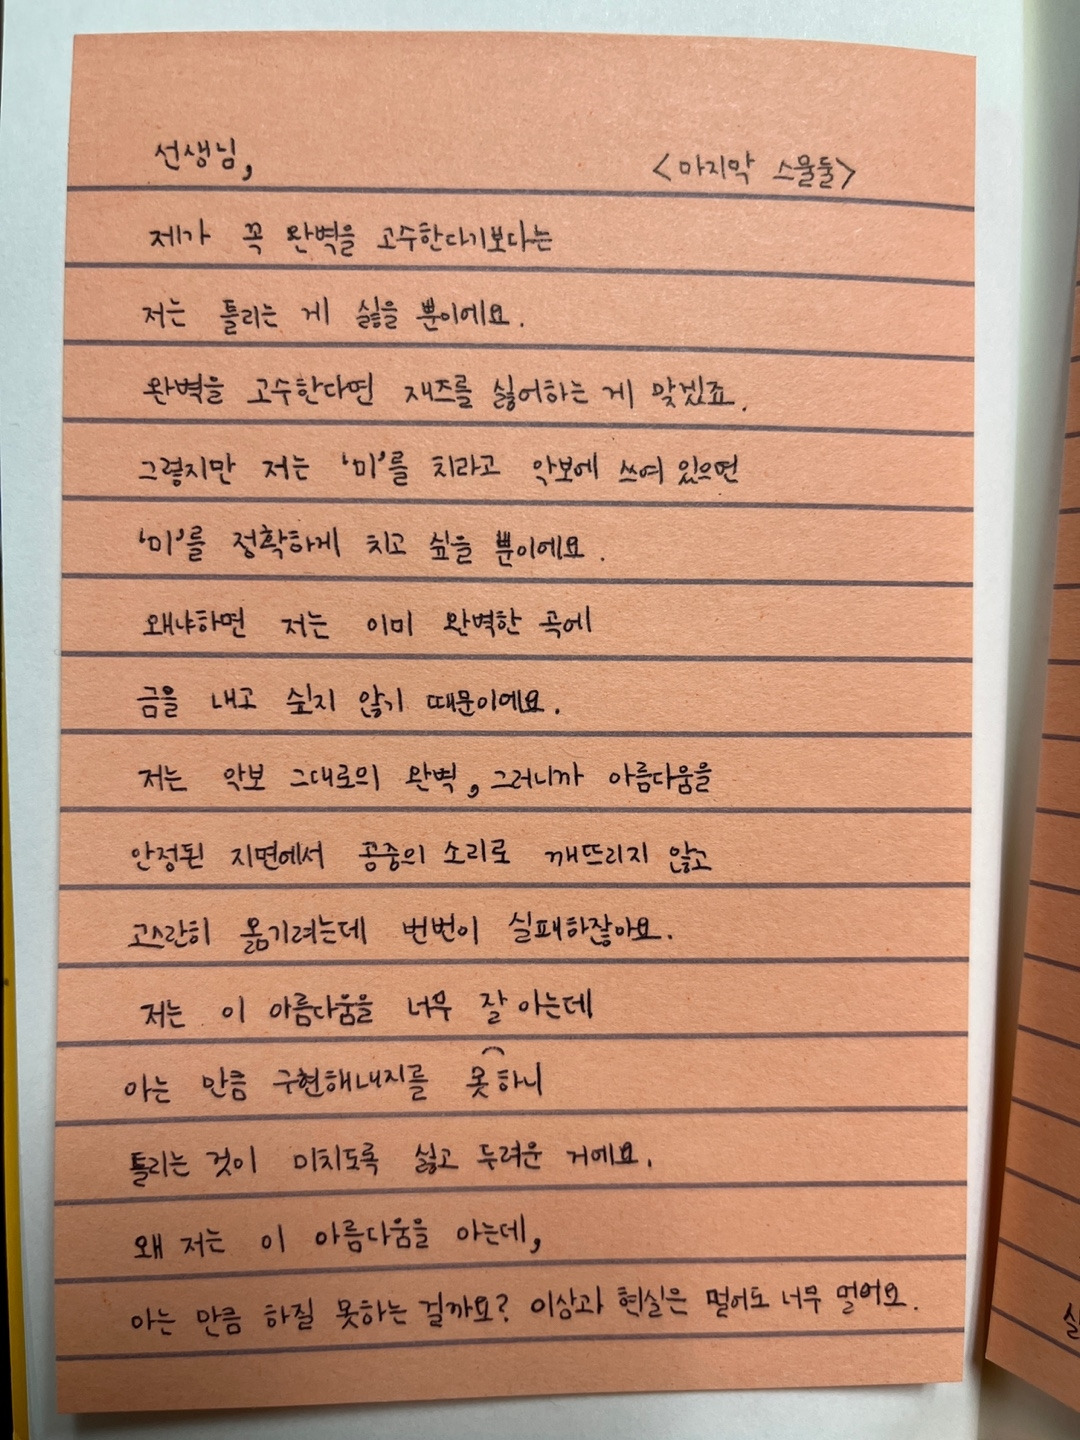 선생님,
<마지막 스물둘>
제가 꼭 완벽을 고수한다기보다는
저는 틀리는 게 싫을 뿐이에요.
완벽을 고수한다면 재즈를 싫어하는 게 맞겠죠.
그렇지만 저는 '미'를 치라고 악보에 쓰여 있으면
'미'를 정확하게 치고 싶을 뿐이에요.
왜냐하면 저는 이미 완벽한 곡에
금을 내고 싶지 않기 때문이에요.
저는 악보 그대로의 완벽, 그러니까 아름다움을
안정된 지면에서 공중의 소리로 깨뜨리지 않고
고스란히 옮기려는데 번번이 실패하잖아요.
저는 이 아름다움을 너무 잘 아는데
아는 만큼 구현해내지를 못하니
틀리는 것이 미치도록 싫고 두려운 거에요.
왜 저는 이 아름다움을 아는데,
아는 만큼 하질 못하는 걸까요? 이상과 현실은 멀어도 너무 멀어요.